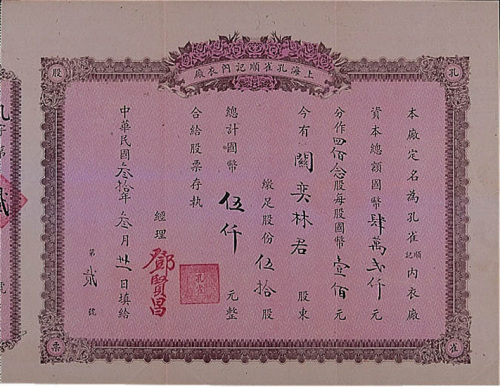 上海孔雀順記內衣廠
股
孔
票
雀
本廠定名為孔雀順記內衣廠
資本總額國幣肆萬弍仟元
分作四佰念股每股國幣壹佰元
今有關奕林君股東
繳足股份伍拾股
總計國幣伍仟元整
合給股票存執
經理鄧賢昌
中華民國叁拾年叁月卅一日填給
第貳號